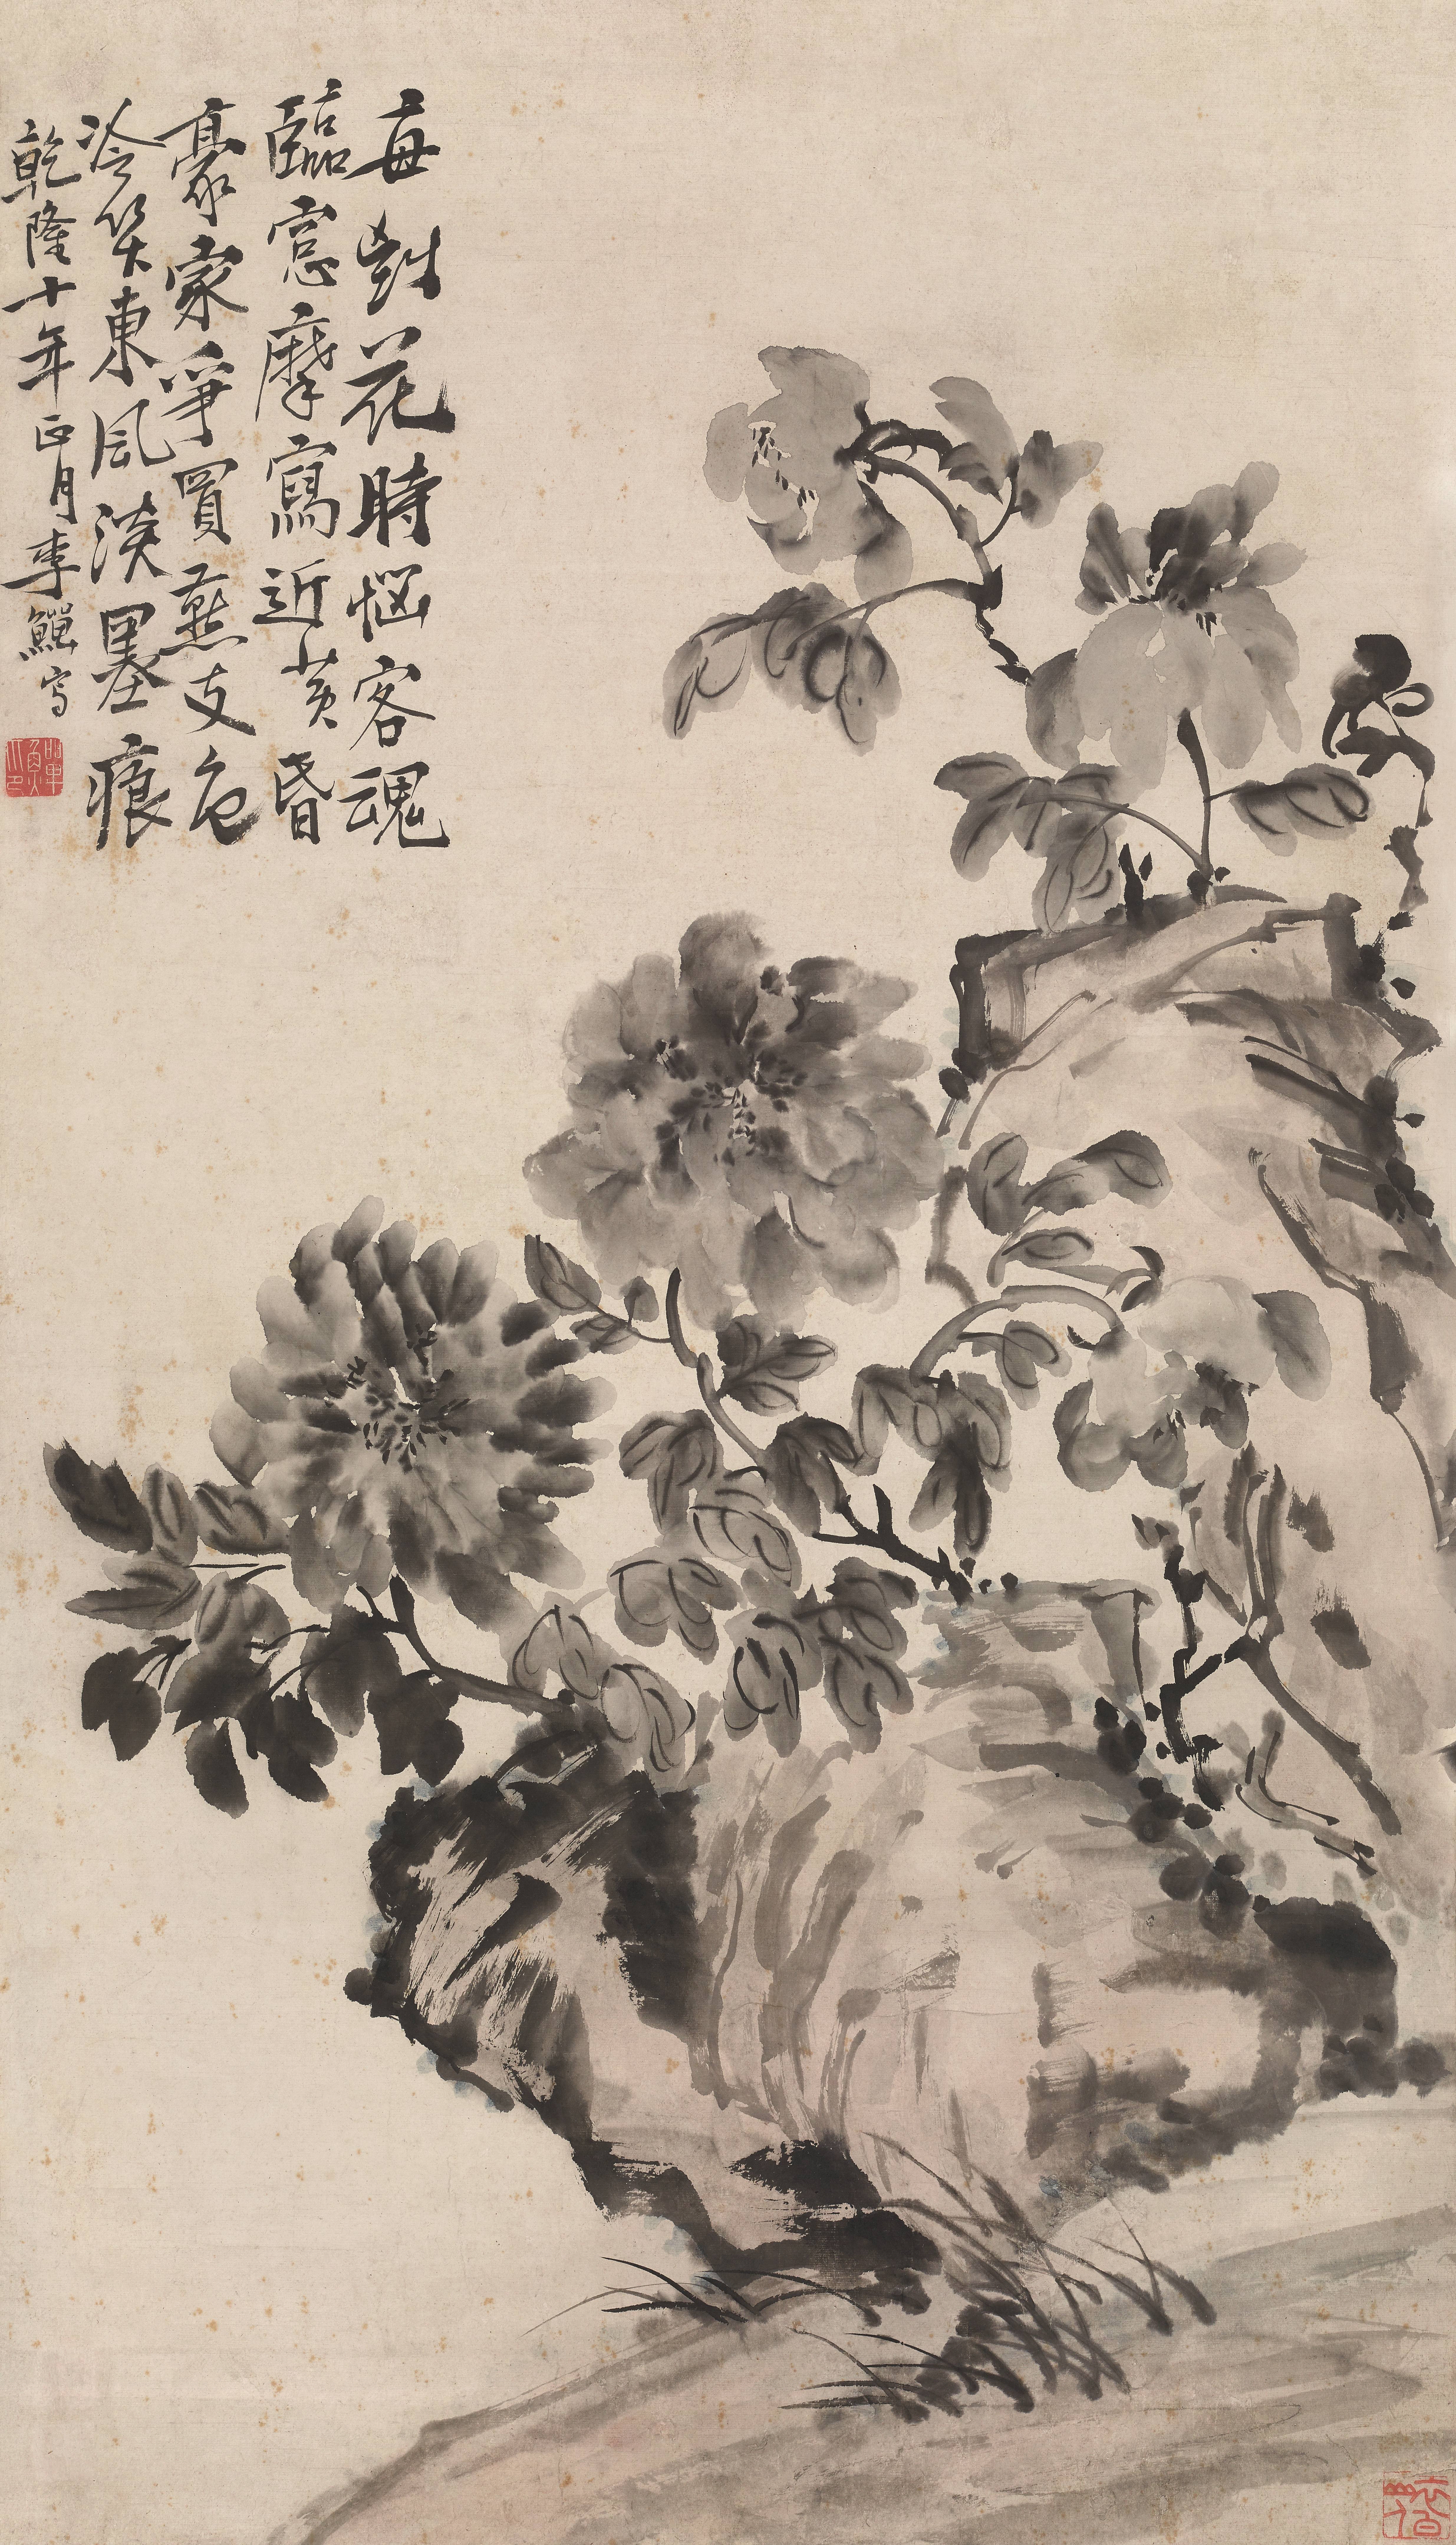 每到花時惱客魂
臨窓摩寫近黃昏
豪家爭買燕支色
冷笑東風淡墨痕
乾隆十年正月李鱓寫